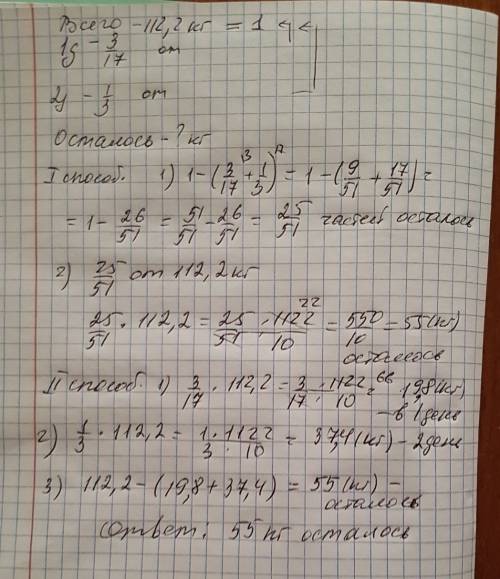 Всего - 112,2 кг = 1
1д - 3/17 от
2д - 1/3 от
Осталось - ? кг
I способ. 1) 1 - (3/17 + 1/3) = 1 - (9/51 + 17/51) =
= 1 - 26/51 = 51/51 - 26/51 = 25/51 частей осталось
2) 25/51 от 112,2 кг
25/51 · 112,2 = 25/51 · 1122/10 = 550/10 = 55 (кг)
осталось
II способ. 1) 3/17 · 112,2 = 3/17 · 1122/10 = 19,8 (кг)
- в 1 день
2) 1/3 · 112,2 = 1 · 1122 / 3 · 10 = 37,4 (кг) - 2 день
3) 112,2 - (19,8 + 37,4) = 55 (кг) -
осталось
Ответ: 55 кг осталось